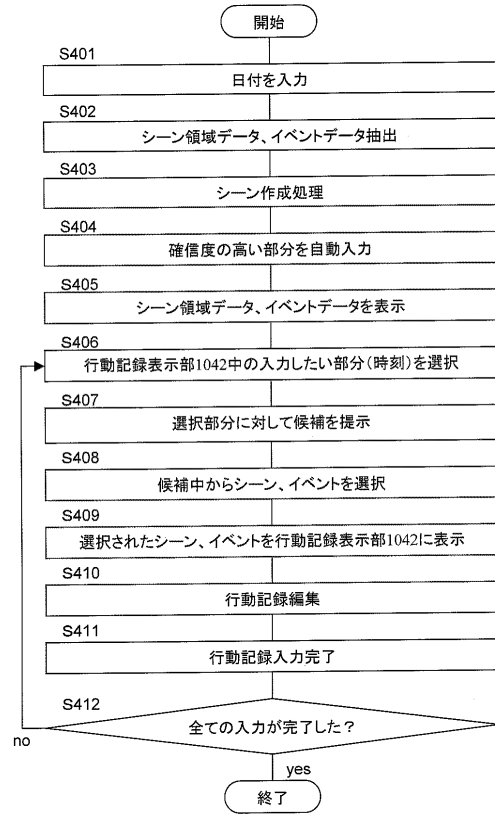 開始
S401
日付を入力
S402
シーン領域データ、イベントデータ抽出
S403
シーン作成処理
S404
確信度の高い部分を自動入力
S405
シーン領域データ、イベントデータを表示
S406
行動記録表示部1042中の入力したい部分(時刻)を選択
S407
選択部分に対して候補を提示
S408
候補中からシーン、イベントを選択
S409
選択されたシーン、イベントを行動記録表示部1042に表示
S410
行動記録編集
S411
行動記録入力完了
S412
全ての入力が完了した?
no
yes
終了